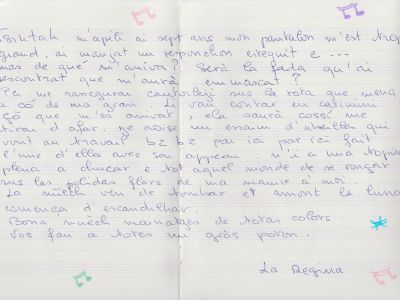 m'apèli ai sèpt ans mon pantalon m'es tròp
grand, ai manjat un responchon ciraguit e ...
mas de qué m'arriva? Serà la fada qu'ai
rescontrat que m'aurà emmascat?
Per me rassegurar cantorlegi sus la rota que mena
a cò de ma gran. Li vau contar en catimini
çò que m'es arrivat, ela saurà cossí me
tirar d'afar. Ne avise un eissam d'abelhas qui
vont au travail bz bz par ici par ici fait
l'une d'elles avec sa appeau: n'i a una topina
plena a chucar e tot aquel monde de se ronçar
sus las polidas flors de ma mamie à moi.
La nuèch ven de tombar et amont la luna
comença d'escandilhar.
Bona nuèch mainatges de totas colors
Vos fau a totes un gròs poton.
La Regina